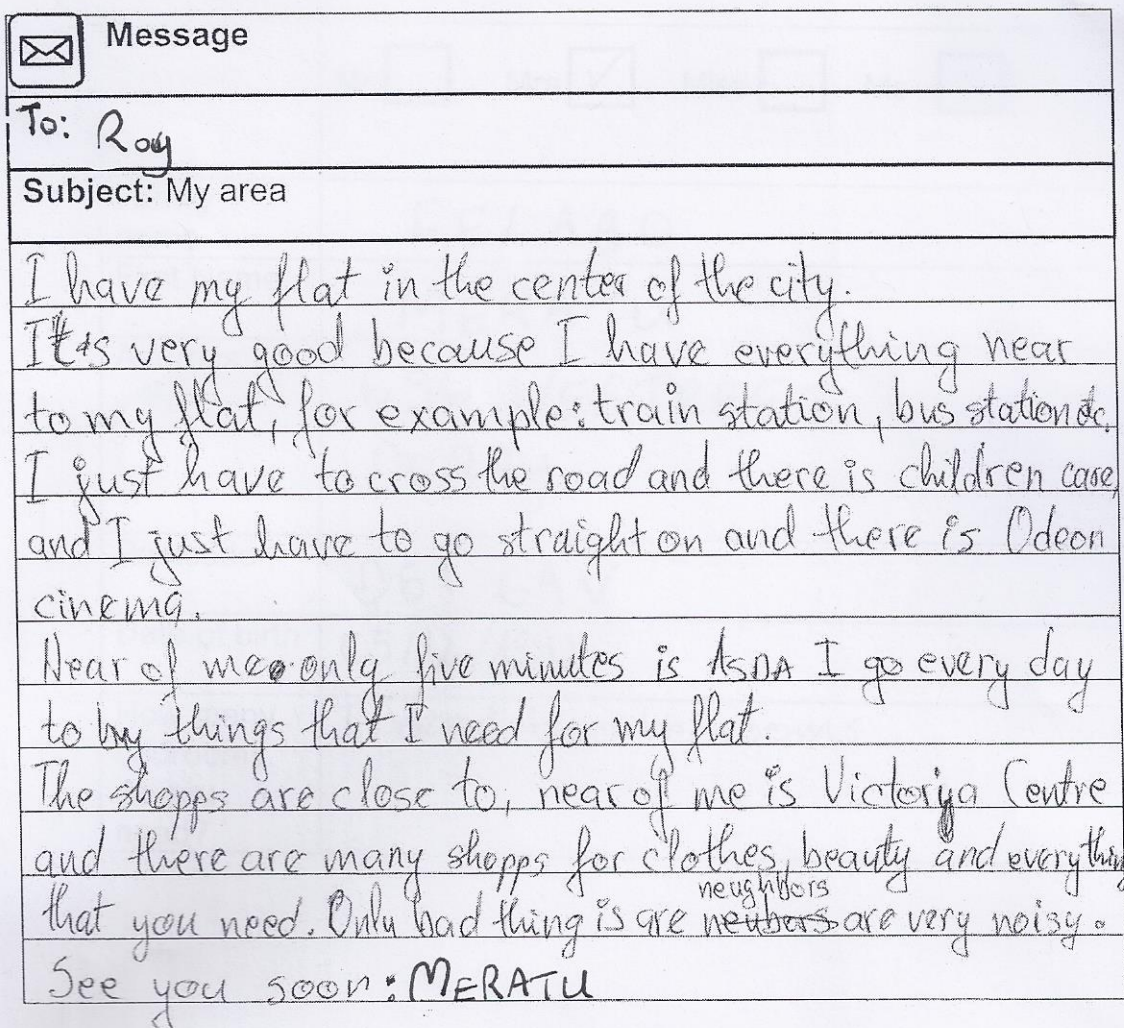 Message
To: Roy
Subject: My area
I have my flat in the center of the city.
It's very good because I have everything near
to my flat, for example: train station, bus station etc.
I just have to cross the road and there is children care,
and I just have to go straight on and there is Odeon
cinema.
Near of me only five minutes is ASDA I go every day
to by things that I need for my flat.
The shopps are close to, near of me is Victoriya Centre
and there are many shopps for clothes, beauty and everything
that you need. Only bad thing is are neughbors are very noisy.
See you soon: MERATU